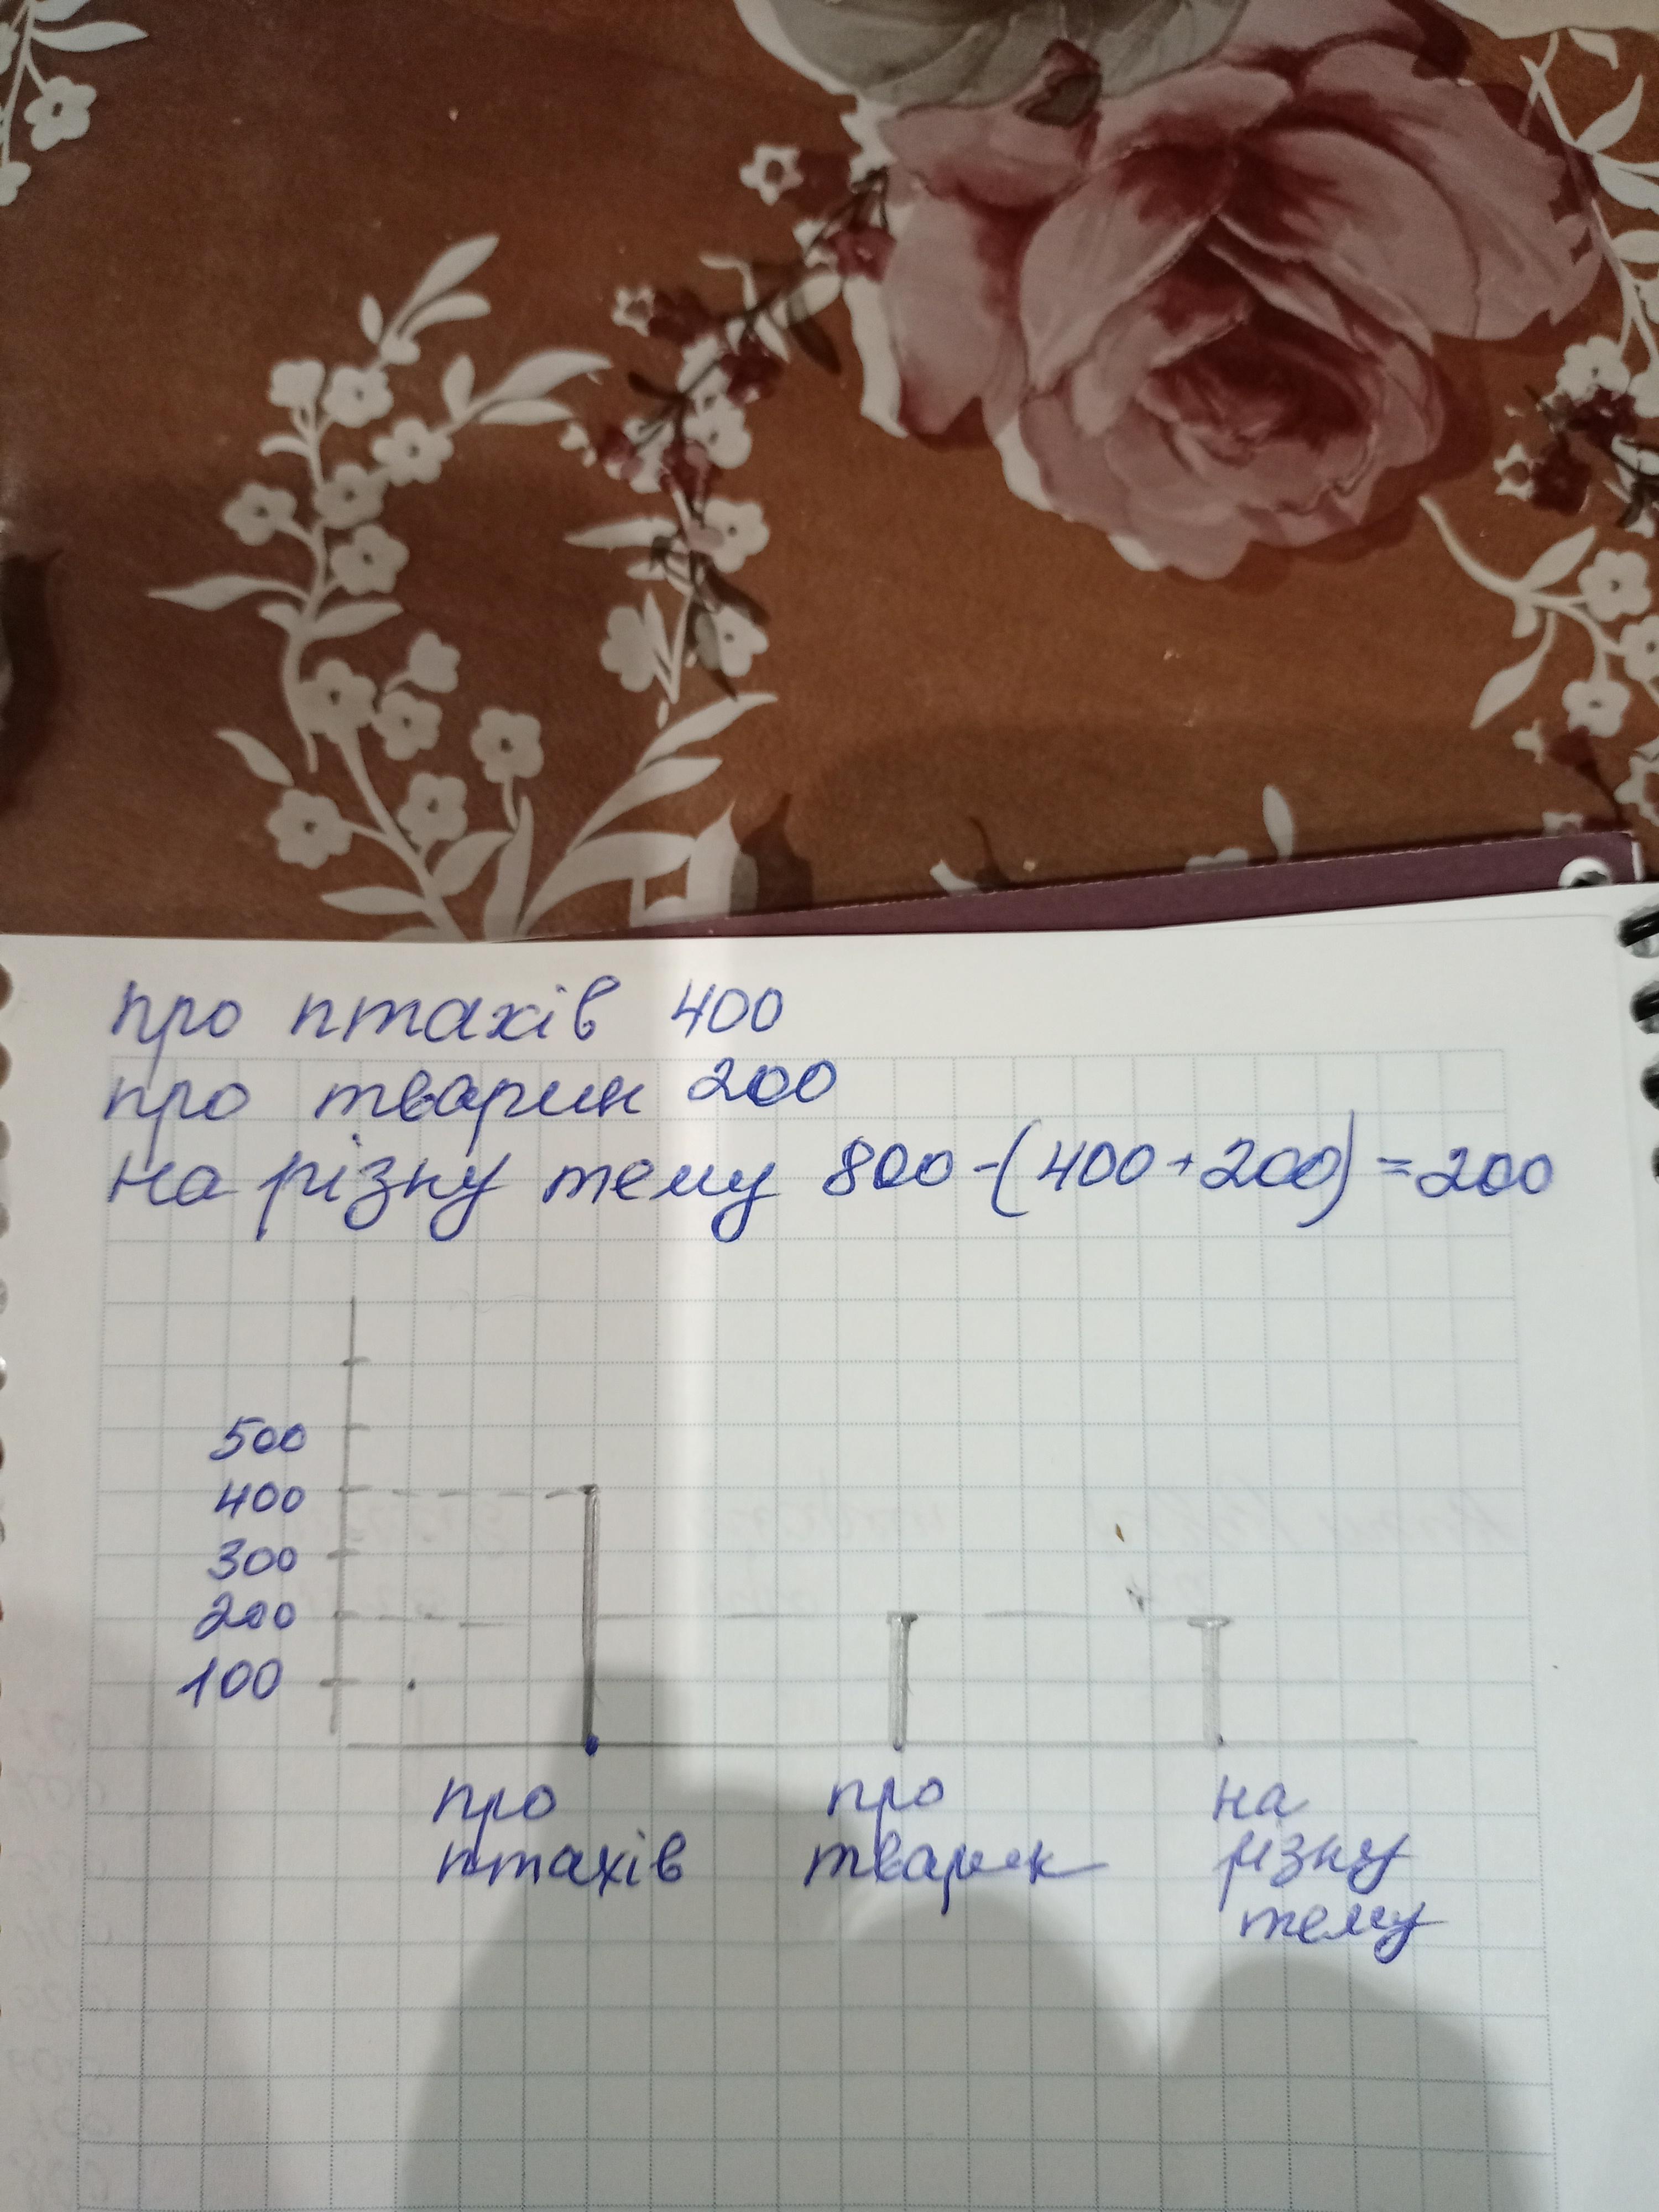 про птахів 400
про тварин 200
на різну тему 800-(400+200)=200
500
400
300
200
100
про
птахів
про
тварин
на
різну
тему